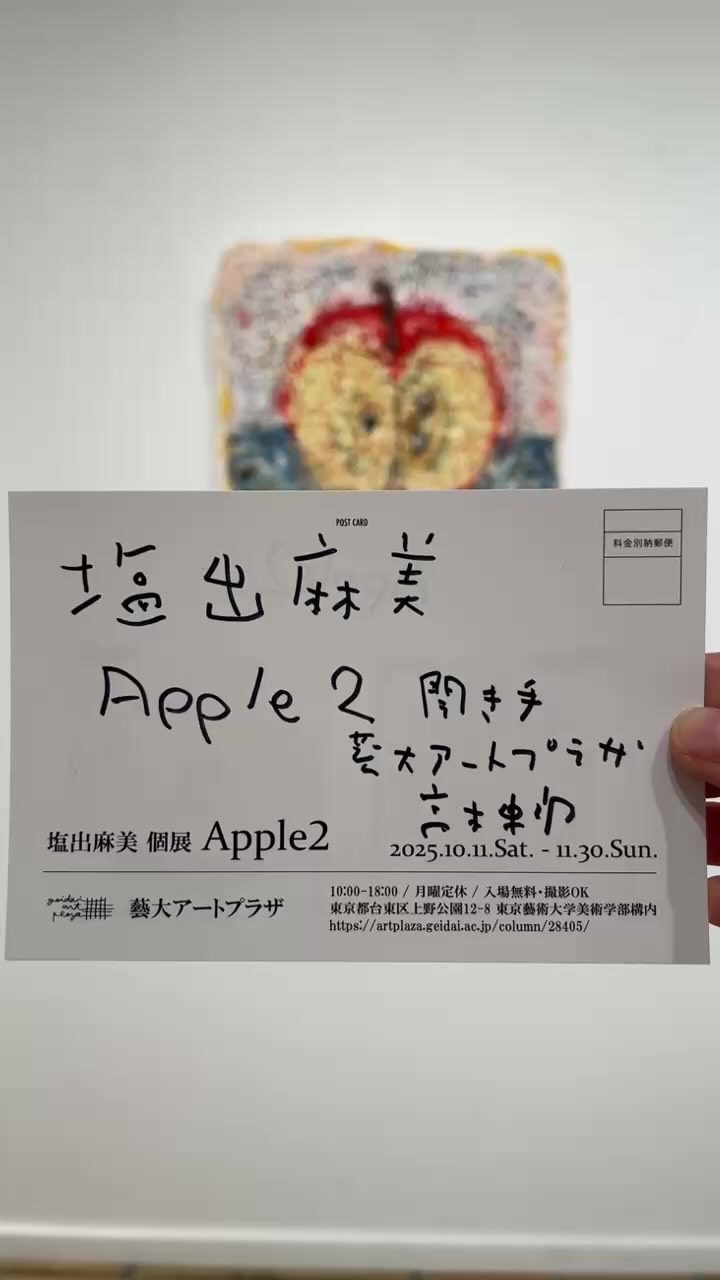 POST CARD
料金別納郵便
塩出麻美
Apple 2 聞き手
藝大アートプラザ
高木
塩出麻美 個展 Apple2
2025.10.11.Sat. - 11.30.Sun.
geidai art plaza
藝大アートプラザ
10:00-18:00 / 月曜定休 / 入場無料・撮影OK
東京都台東区上野公園12-8 東京藝術大学美術学部構内
https://artplaza.geidai.ac.jp/column/28405/